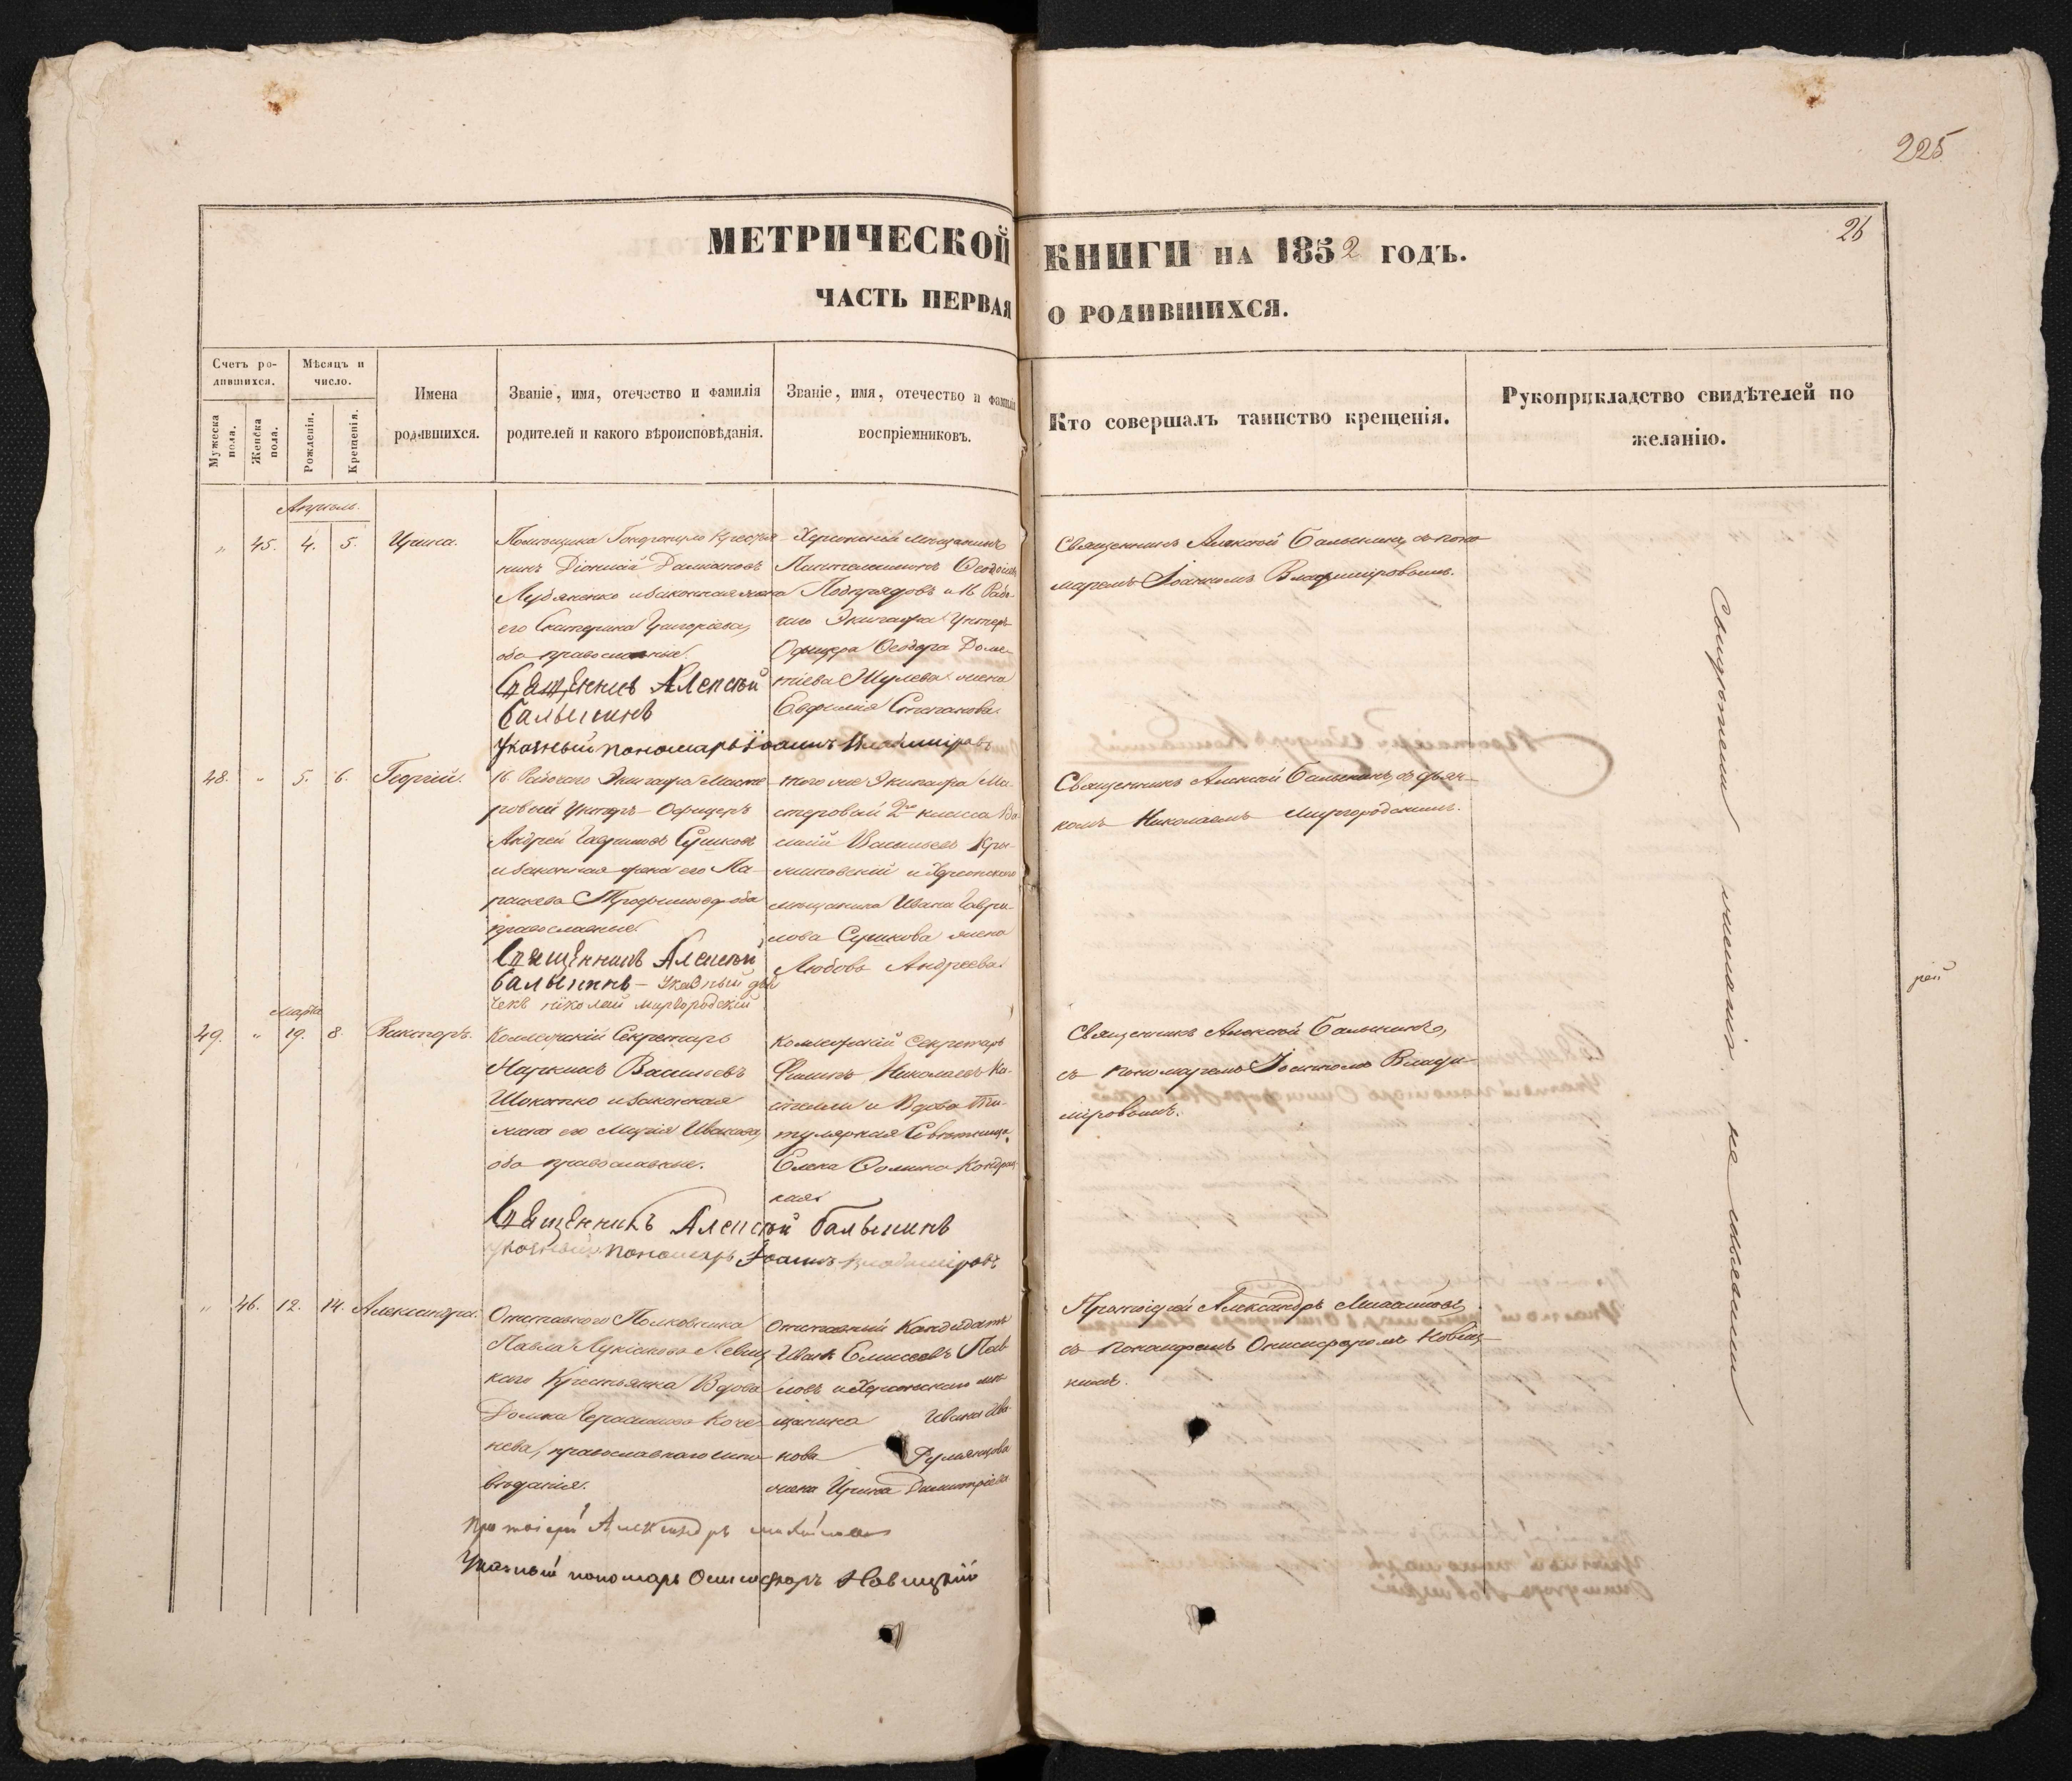 225
26
МЕТРИЧЕСКОЙ КНИГИ НА 1852 ГОДЪ.
ЧАСТЬ ПЕРВАЯ О РОДИВШИХСЯ.
Счетъ родившихся.
Мужеска пола.
Женска пола.
Мѣсяцъ и число.
Рожденія.
Крещенія.
Имена родившихся.
Званіе, имя, отечество и фамилія родителей и какого вѣроисповѣданія.
Званіе, имя, отечество и фамилія воспріемниковъ.
Кто совершалъ таинство крещенія.
Рукоприкладство свидѣтелей по желанію.
Апрель.
„ 45. 4. 5. Ирина.
Помѣщика Крестья-
нинъ Діонисій
и законная жена
его Екатерина Григоріева,
оба православные.
Священникъ Алексѣй
Балыкинъ
Указный пономарь Іоаннъ Владиміровъ
Херсонскій мѣщанинъ
и 16 Рабо-
чаго Экипажа Унтеръ-
Офицера Ѳеодора Доме-
нтіева жена
Евфимія Степанова.
Священникъ Алексѣй Балыкинъ, съ поно-
маремъ Іоанномъ Владиміровымъ.
48. „ 5. 6. Георгій.
16 Рабочаго Экипажа Масте-
ровой Унтеръ-Офицеръ
Андрей Гавриловъ Сушковъ
и законная жена его Па-
раскева Трофимова, оба
православные.
Священникъ Алексѣй
Балыкинъ – Указный дья
чекъ Николай Миргородскій
того же Экипажа Ма-
стеровой 2го класса Ва-
силій Васильевъ Кры-
жановскій и Херсонскаго
мѣщанина Ивана Гаври-
лова Сушкова жена
Любовь Андреева.
Священникъ Алексѣй Балыкинъ, съ дьяч-
комъ Николаемъ Миргородскимъ.
Марта
49. „ 19. 8. Викторъ.
Коллежскій Секретарь
Маркинъ Васильевъ
Шокотко и законная
жена его Марія Иванова,
оба православные.
Священникъ Алексѣй Балыкинъ
указный пономарь Іоаннъ Владиміровъ
Коллежскій Секретарь
Филипъ Николаевъ Ка-
и Вдова Ти-
тулярная Совѣтница
Елена Ѳомина
кая.
Священникъ Алексѣй Балыкинъ,
съ пономаремъ Іоанномъ Влади-
міровымъ.
„ 46. 12. 14. Александра.
Отставного Полковника
Павла Лукіанова Левиц-
каго Крестьянка Вдова
Домна Герасимова Коче-
нева, православнаго испо-
вѣданія.
Протоіерей Александръ
Указный пономарь Онисифоръ Новицкій
Отставной Кандидатъ
Иванъ Елисеевъ Пав-
ловъ и Херсонскаго мѣ-
щанина Ивана Ива-
нова Румянцова
жена Ирина Димитріева
Протоіерей Александръ
съ пономаремъ Онисифоромъ Новиц-
кимъ.
Свидѣтели желанія не изъявили
рей